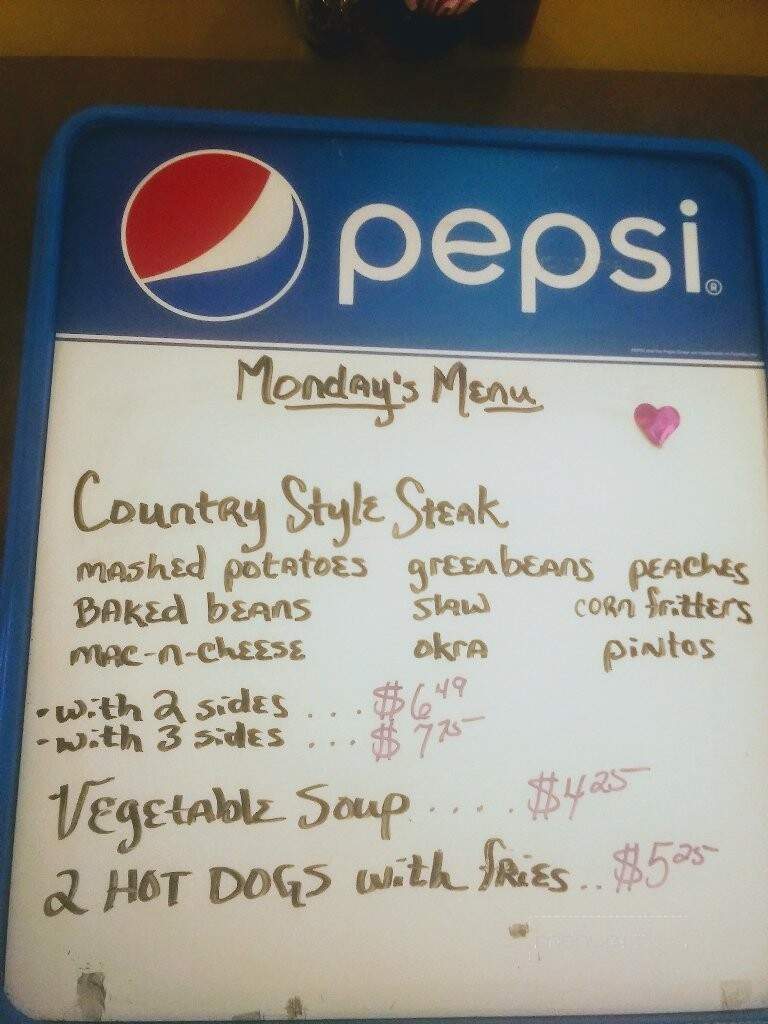 pepsi®
Monday's Menu
Country Style Steak
mashed potatoes green beans peaches
Baked beans slaw corn fritters
mac-n-cheese okra pintos
- with 2 sides ... $6.49
- with 3 sides ... $7.75
Vegetable Soup .... $4.25
2 HOT DOGS with fries .. $5.25